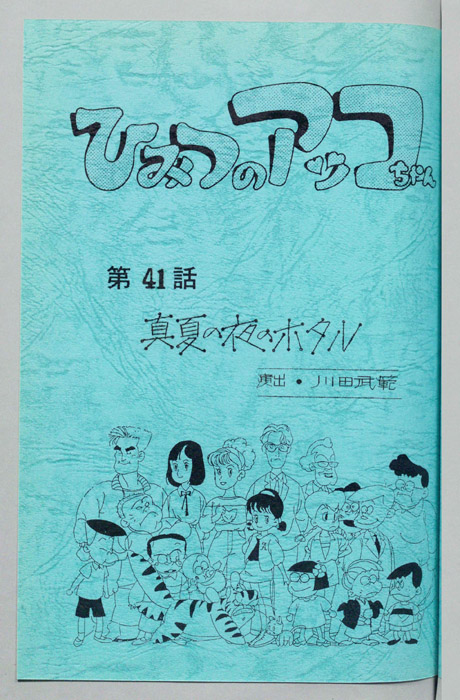 ひみつのアッコちゃん
第41話
真夏の夜のホタル
演出・川田武範